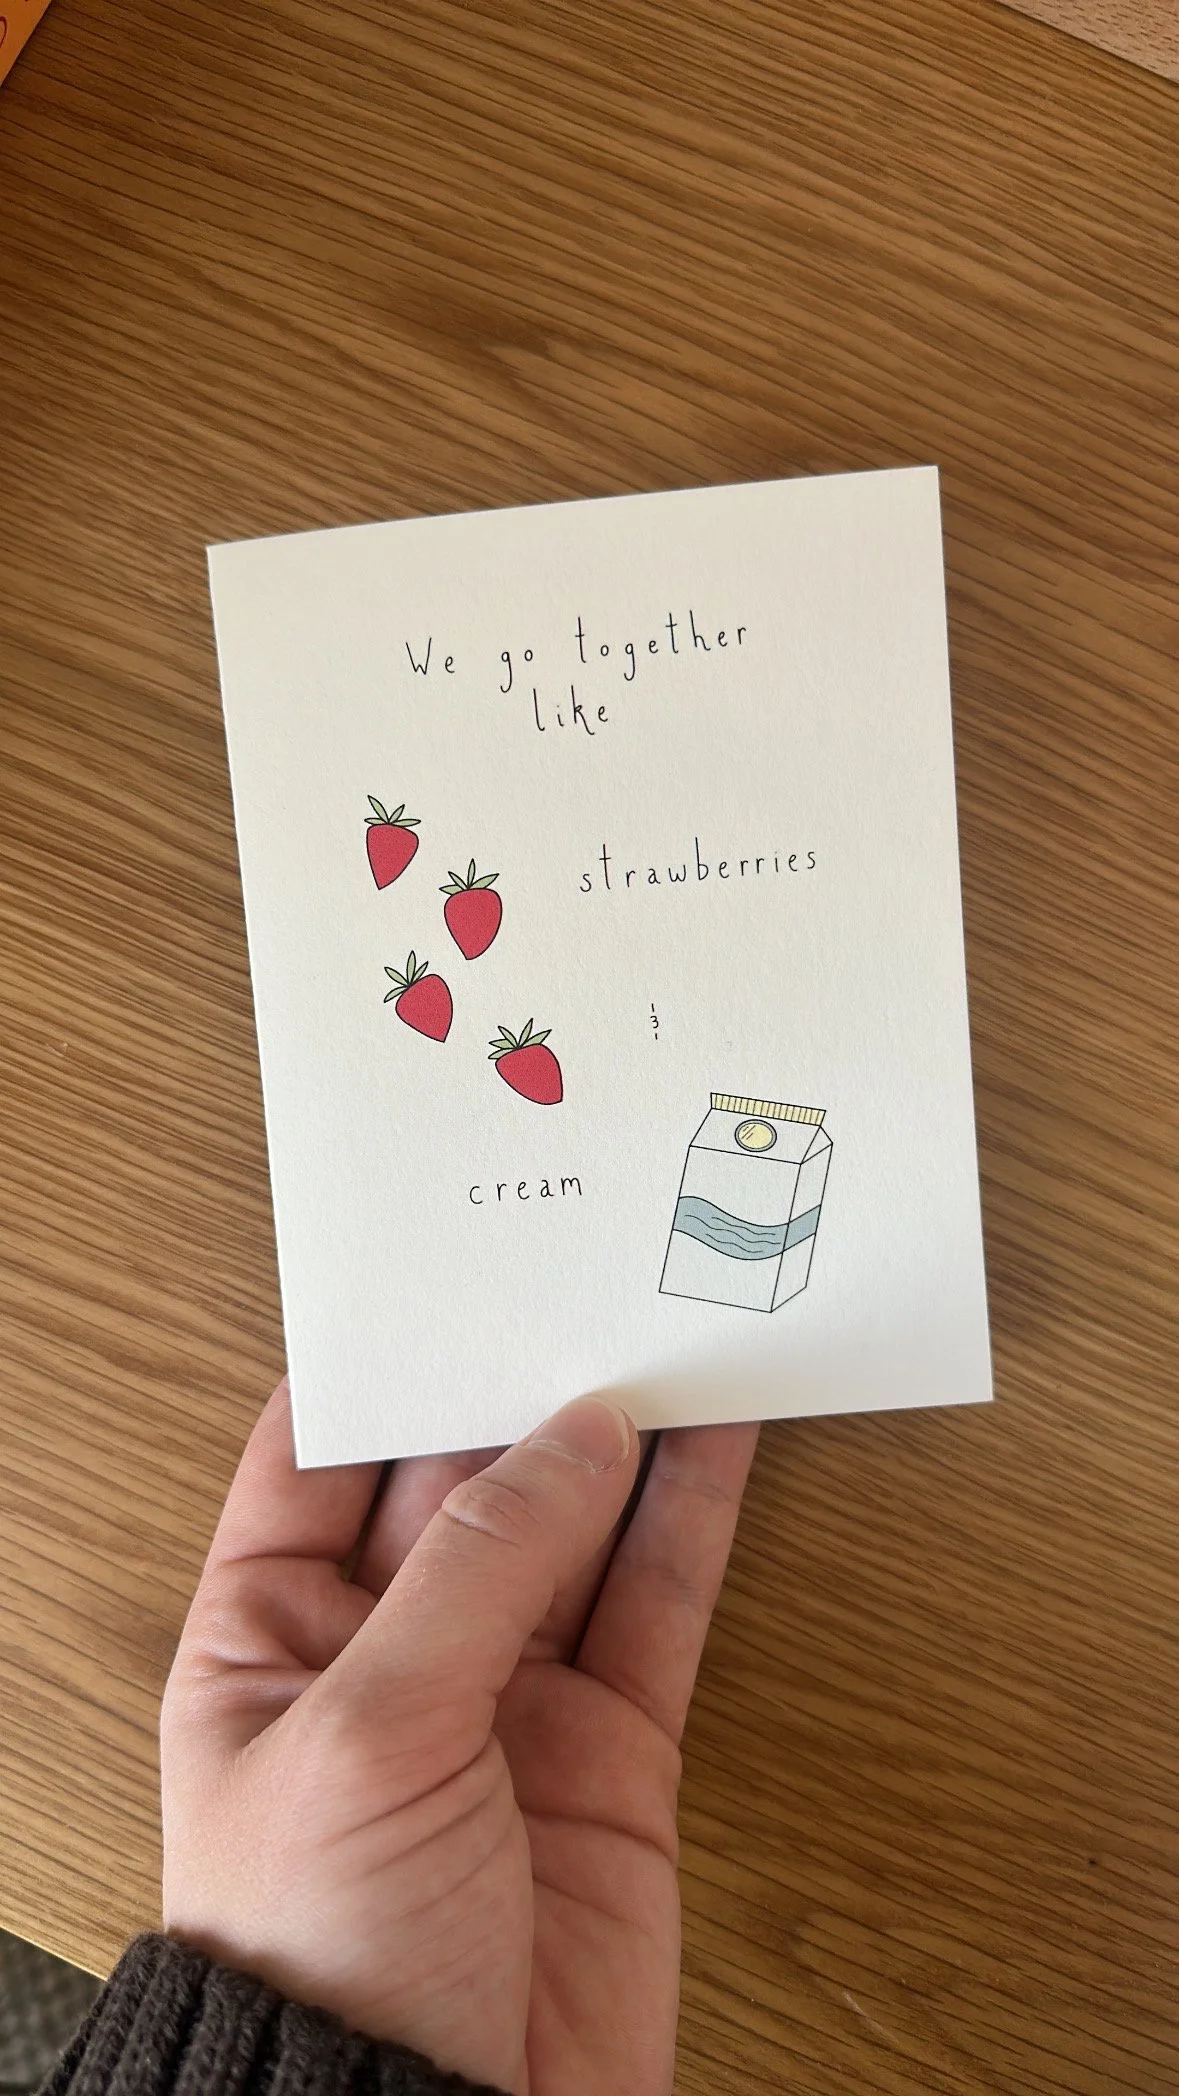 We go together
like
strawberries
&
cream